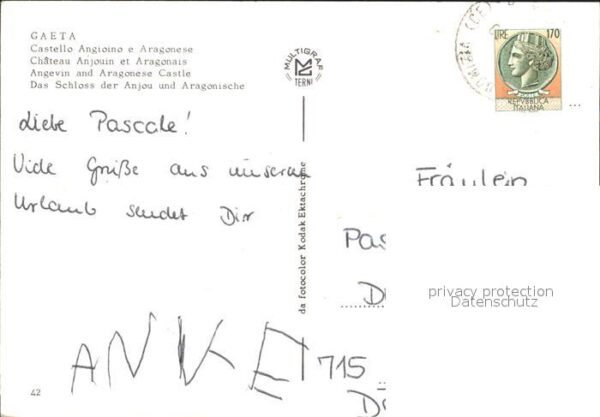 GAETA
Castello Angioino e Aragonese
Château Anjouin et Aragonais
Angevin and Aragonese Castle
Das Schloss der Anjou und Aragonische
MULTIGRAF
TERNI
LIRE 170
REPVBBLICA
ITALIANA
Liebe Pascale!
Viele Grüße aus unserem
Urlaub sendet Dir
ANKE
da fotocolor Kodak Ektachrome
Fräulein
Pas
D
privacy protection
Datenschutz
715
42